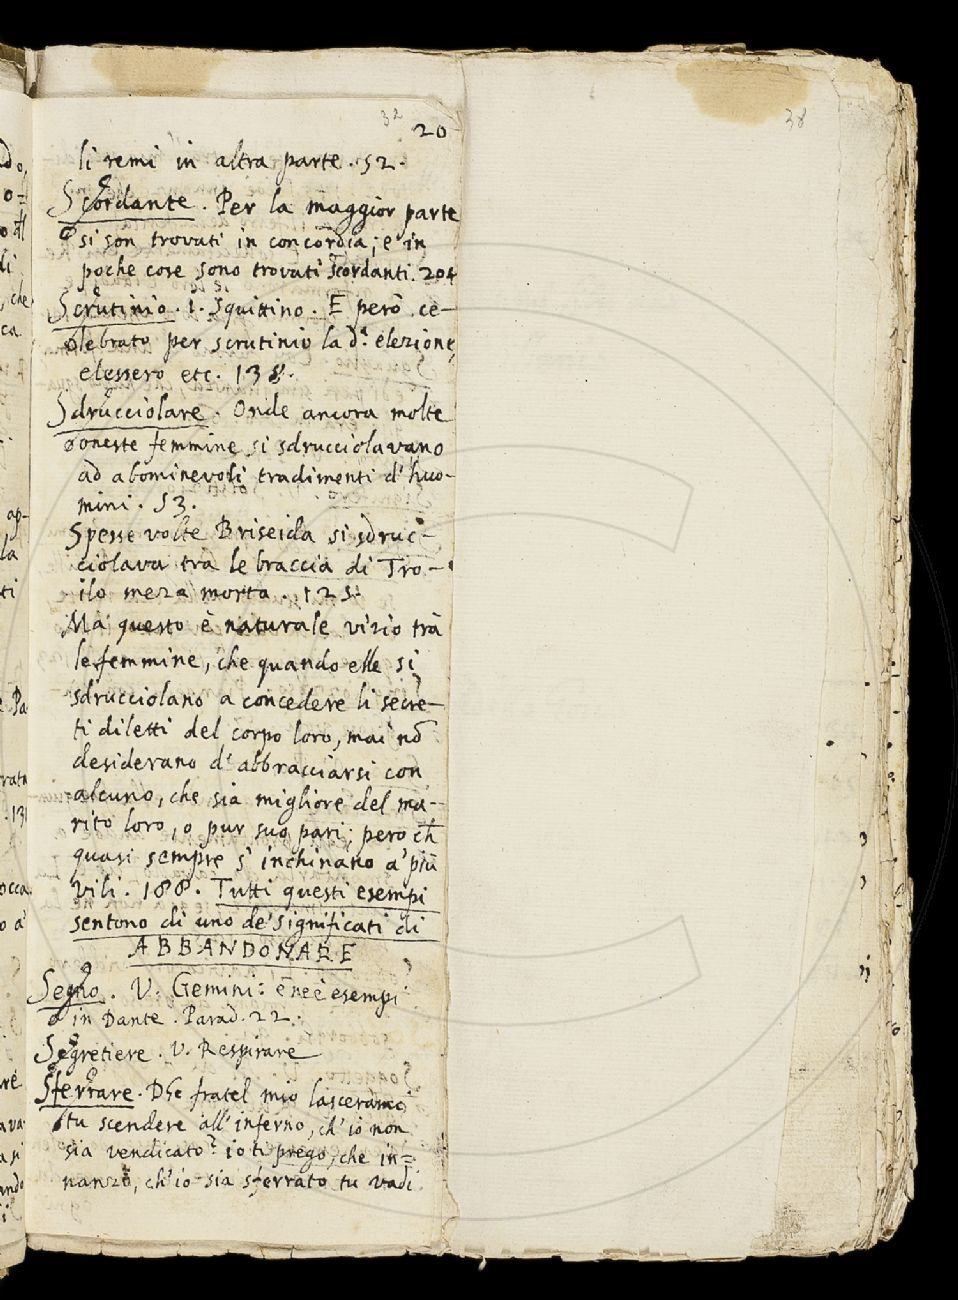 32
20
38
li remi in altra parte. 52.
Scordante. Per la maggior parte
si son trovati in concordia, e in
poche cose sono trovati scordanti. 204
Scrutinio. i. Squittino. E però ce-
lebrato per scrutinio la d.ª elezione,
elessero etc. 138.
Sdrucciolare. Onde ancora molte
oneste femmine si sdrucciolavano
ad abominevoli tradimenti d'huo-
mini. 53.
Spesse volte Briseida si sdruc-
ciolava trà le braccia di Tro-
ilo meza morta. 125.
Ma questo è naturale vizio trà
le femmine, che quando elle si
sdrucciolano a concedere li secre-
ti diletti del corpo loro, mai nō
desiderano d'abbracciarsi con
alcuno, che sia migliore del ma-
rito loro, o pur suo pari; però ch̄
quasi sempre s'inchinano a' più
vili. 188. Tutti questi esempi
sentono di uno de' significati di
ABBANDONARE
Segno. V. Gemini: e ne è esempi
in Dante. Parad. 22.
Segretiere. V. Respirare
Sferrare. Dhe fratel mio lasceràmi
tu scendere all'inferno, ch'io non
sia vendicato? io ti prego, che in=
nanzi, ch'io sia sferrato tu vadi